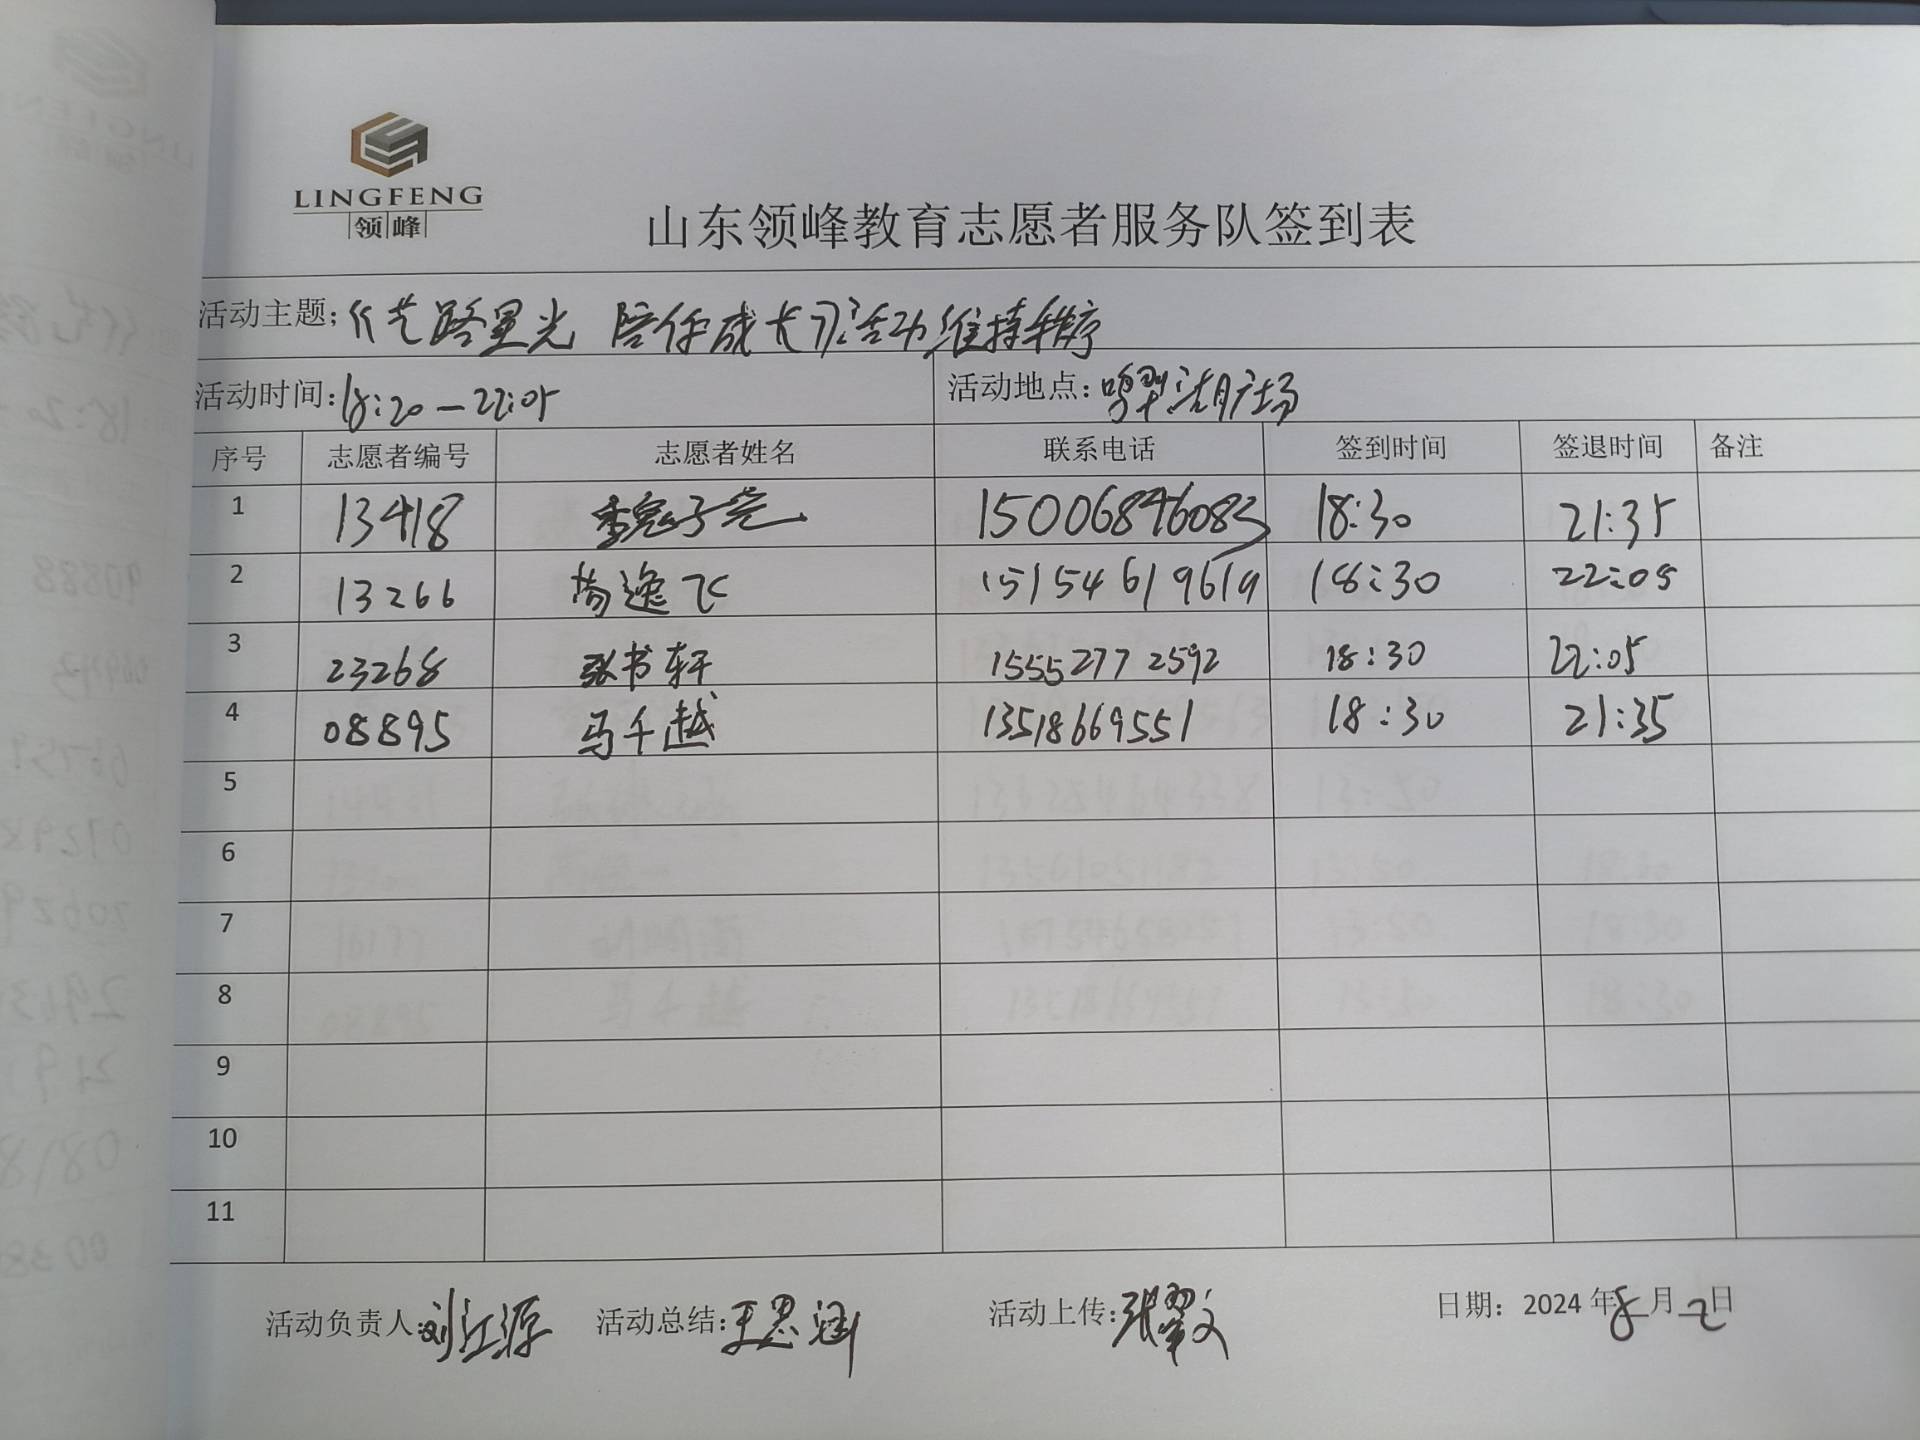 LINGFENG
领峰
山东领峰教育志愿者服务队签到表
活动主题:《艺路星光 陪伴成长》活动维持秩序
活动时间:18:20—22:05 活动地点:鸣翠湖广场
序号 志愿者编号 志愿者姓名 联系电话 签到时间 签退时间 备注
1 13418 魏子尧 15006846083 18:30 21:35
2 13266 尚逸飞 15154619619 18:30 22:05
3 23268 张书轩 15552772592 18:30 22:05
4 08895 马千越 13518669551 18:30 21:35
5
6
7
8
9
10
11
活动负责人:刘江源 活动总结:王思涵 活动上传:张翠文 日期:2024年8月2日